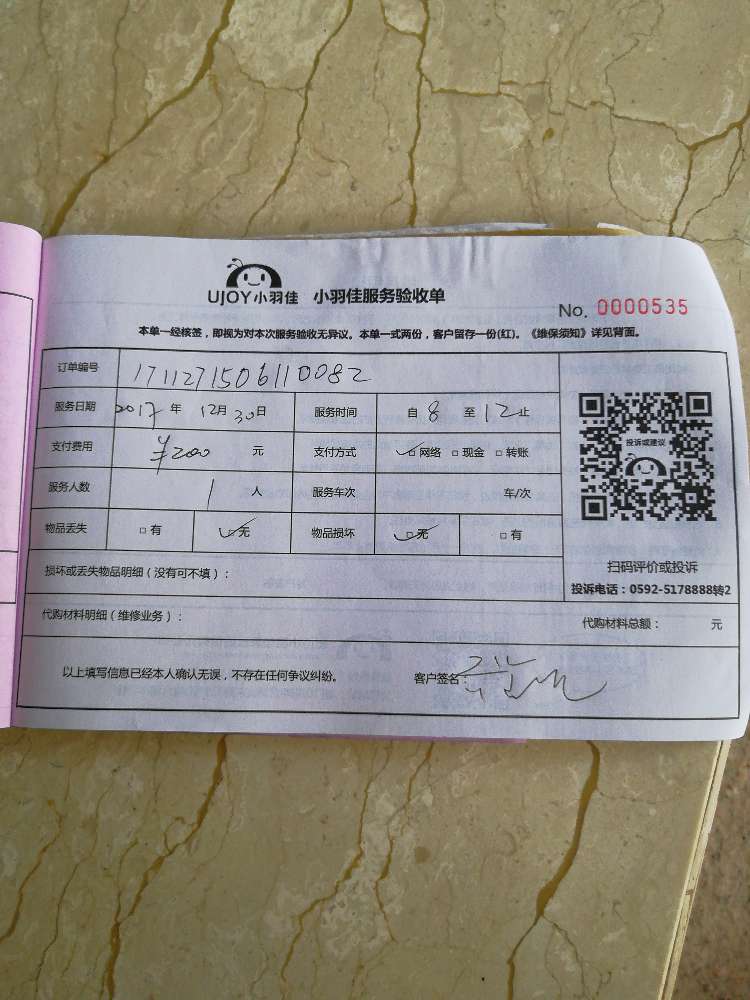 UJOY小羽佳 小羽佳服务验收单
No. 0000535
本单一经核签，即视为对本次服务验收无异议。本单一式两份，客户留存一份(红)。《维保须知》详见背面。
订单编号 1711271506110082
服务日期 2017 年 12月 30日 服务时间 自 8 至 12 止
支付费用 ¥200 元 支付方式 ☑网络 □现金 □转账
服务人数 1 人 服务车次 车/次
物品丢失 □有 ☑无 物品损坏 ☑无 □有
投诉或建议
扫码评价或投诉
投诉电话：0592-5178888转2
损坏或丢失物品明细（没有可不填）：
代购材料明细（维修业务）： 代购材料总额： 元
以上填写信息已经本人确认无误，不存在任何争议纠纷。 客户签名：